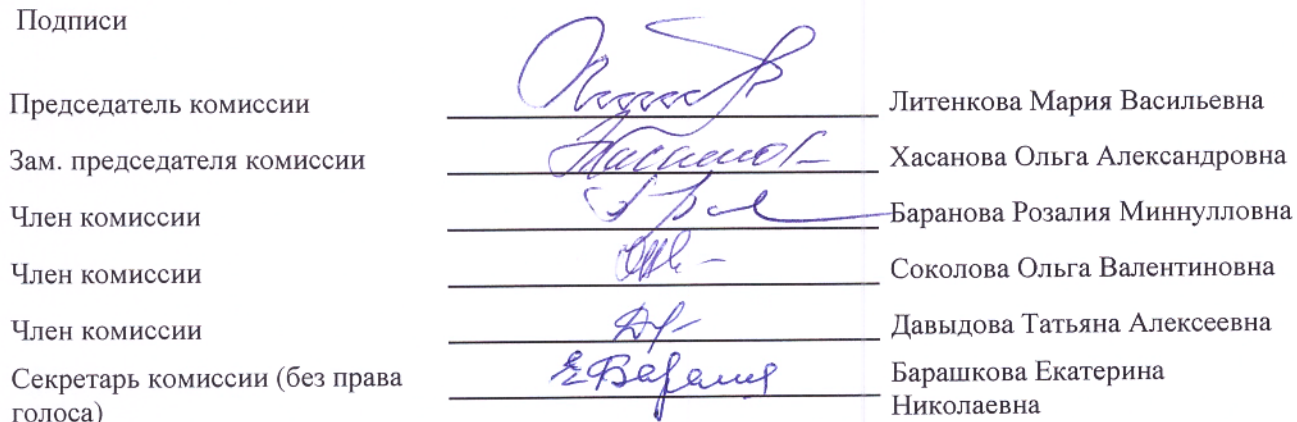 Подписи
Председатель комиссии Литенкова Мария Васильевна
Зам. председателя комиссии Хасанова Ольга Александровна
Член комиссии Баранова Розалия Миннулловна
Член комиссии Соколова Ольга Валентиновна
Член комиссии Давыдова Татьяна Алексеевна
Секретарь комиссии (без права Барашкова Екатерина
голоса) Николаевна